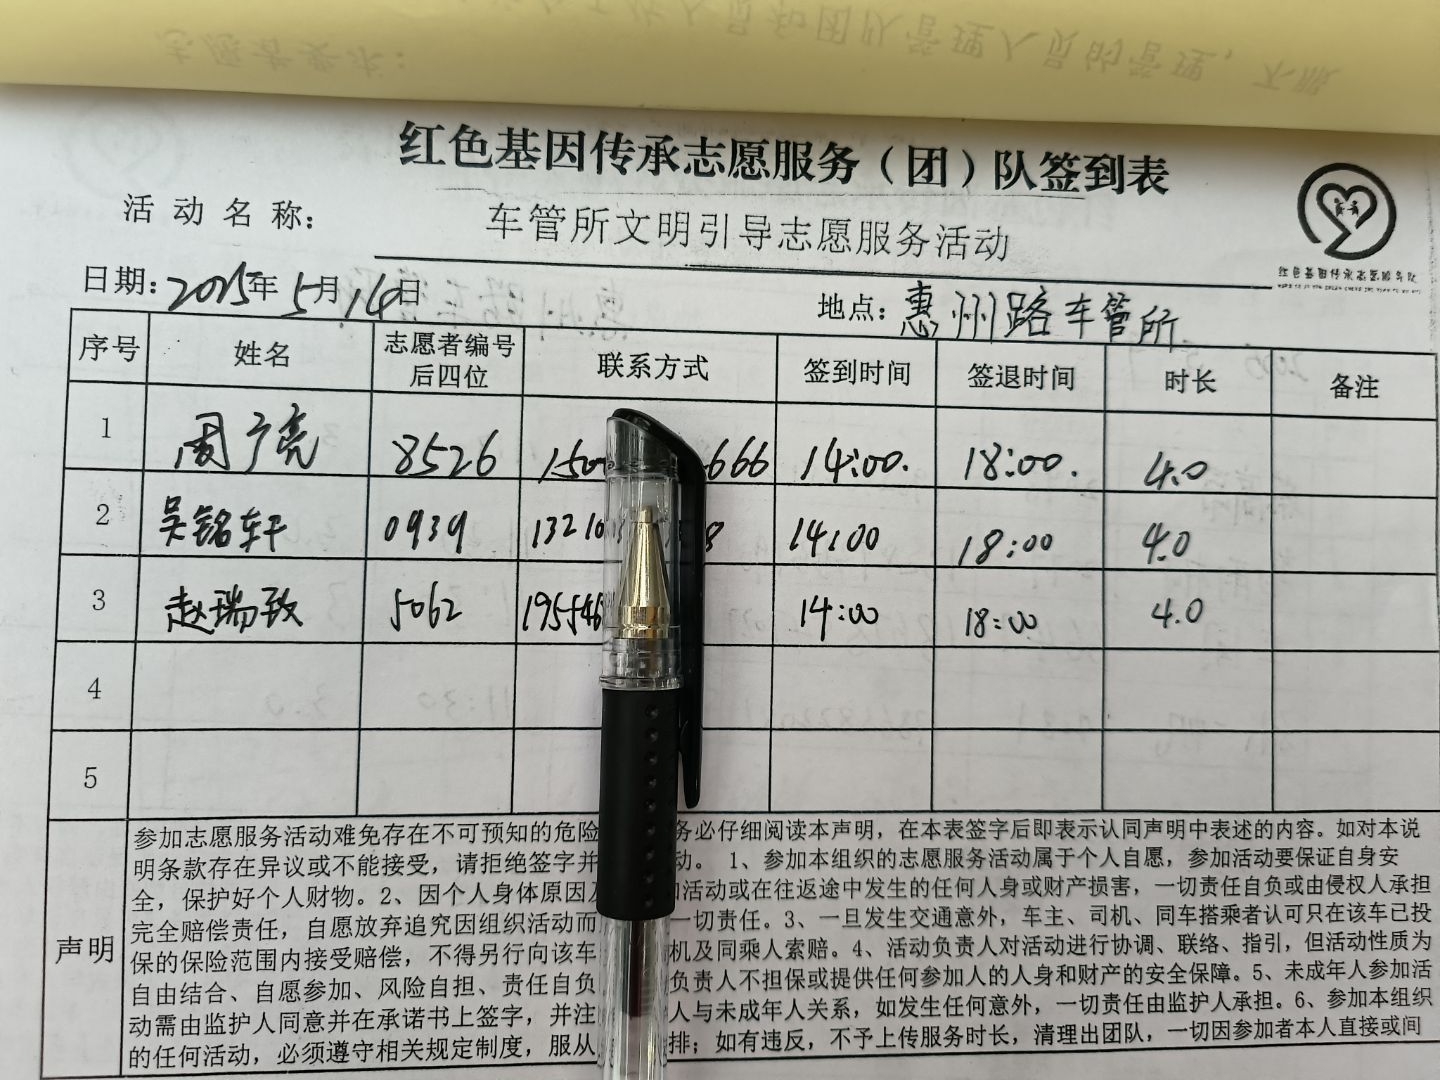 志愿者要求:
人员和团队管理人员的管理，不服
红色基因传承志愿服务（团）队签到表
活动名称: 车管所文明引导志愿服务活动
红色基因传承志愿服务队
日期:2025年5月14日 地点:惠州路车管所
序号 姓名 志愿者编号后四位 联系方式 签到时间 签退时间 时长 备注
1 周广亮 8526 150 666 14:00. 18:00. 4.0
2 吴铭轩 0939 13210 8 14:00 18:00 4.0
3 赵瑞致 5062 195546 14:00 18:00 4.0
4
5
声明
参加志愿服务活动难免存在不可预知的危险 务必仔细阅读本声明，在本表签字后即表示认同声明中表述的内容。如对本说
明条款存在异议或不能接受，请拒绝签字并 动。 1、参加本组织的志愿服务活动属于个人自愿，参加活动要保证自身安
全，保护好个人财物。2、因个人身体原因及 活动或在往返途中发生的任何人身或财产损害，一切责任自负或由侵权人承担
完全赔偿责任，自愿放弃追究因组织活动而 一切责任。3、一旦发生交通意外，车主、司机、同车搭乘者认可只在该车已投
保的保险范围内接受赔偿，不得另行向该车 机及同乘人索赔。4、活动负责人对活动进行协调、联络、指引，但活动性质为
自由结合、自愿参加、风险自担、责任自负 负责人不担保或提供任何参加人的人身和财产的安全保障。5、未成年人参加活
动需由监护人同意并在承诺书上签字，并注 人与未成年人关系，如发生任何意外，一切责任由监护人承担。6、参加本组织
的任何活动，必须遵守相关规定制度，服从 排；如有违反，不予上传服务时长，清理出团队，一切因参加者本人直接或间